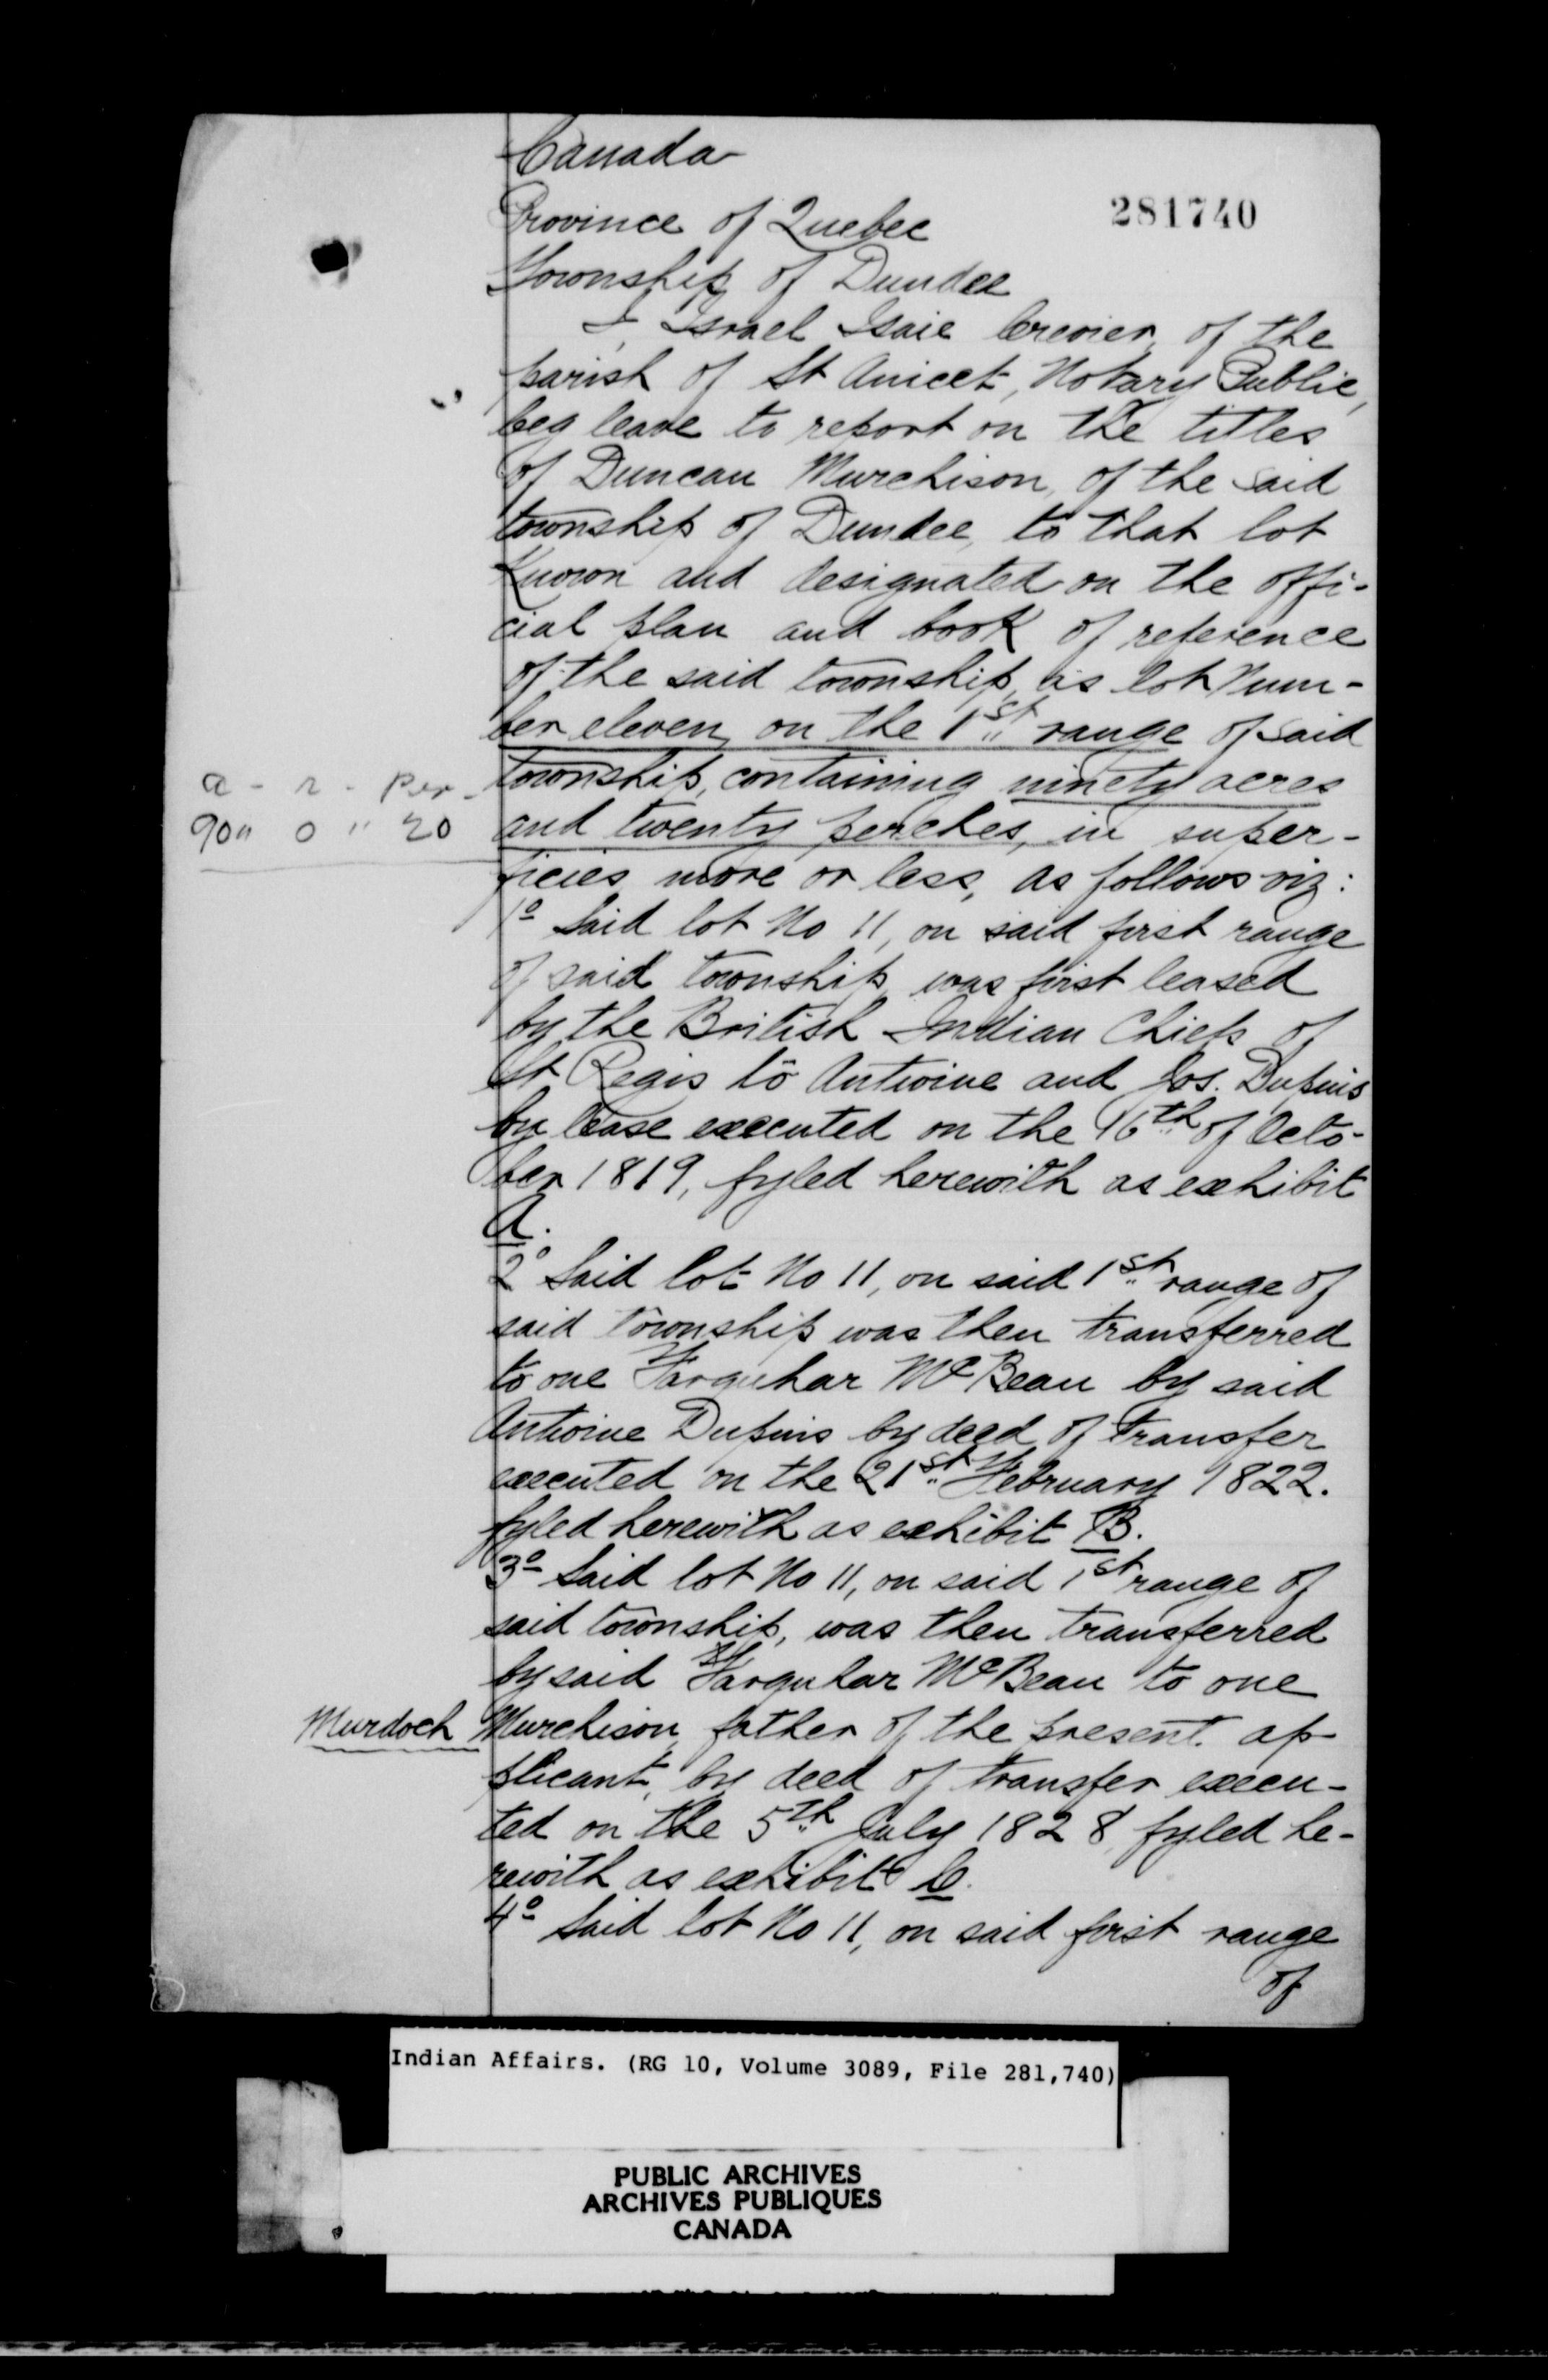 Canada
281740
Province of Quebec
Township of Dundee
I, Israel Isaie Crevier, of the
parish of St Anicet, Notary Public,
beg leave to report on the titles
of Duncan Murchison, of the said
township of Dundee, to that lot
Known and designated on the offi-
cial plan and book of reference
of the said township, as lot Num-
ber eleven, on the 1st range of said
township, containing ninety acres
a - r - Per -
and twenty perches, in super-
90" 0 " 20
ficies more or less, as follows viz:
1o Said lot No 11, on said first range
of said township, was first leased
by the British Indian Chiefs of
St Regis to Antoine and Jos. Dupuis
by lease executed on the 16th of Octo-
ber 1819, fyled herewith as exhibit
A.
2o Said lot No 11, on said 1st range of
said township was then transferred
to one Farquhar McBean by said
Antoine Dupuis by deed of transfer
executed on the 21st February 1822.
fyled herewith as exhibit B.
3o Said lot No 11, on said 1st range of
said township, was then transferred
by said Farquhar McBean to one
Murdoch Murchison, father of the present ap-
plicant, by deed of transfer execu-
ted on the 5th July 1828, fyled he-
rewith as exhibit C.
4o Said lot No 11, on said first range
of
Indian Affairs. (RG 10, Volume 3089, File 281,740)
PUBLIC ARCHIVES
ARCHIVES PUBLIQUES
CANADA